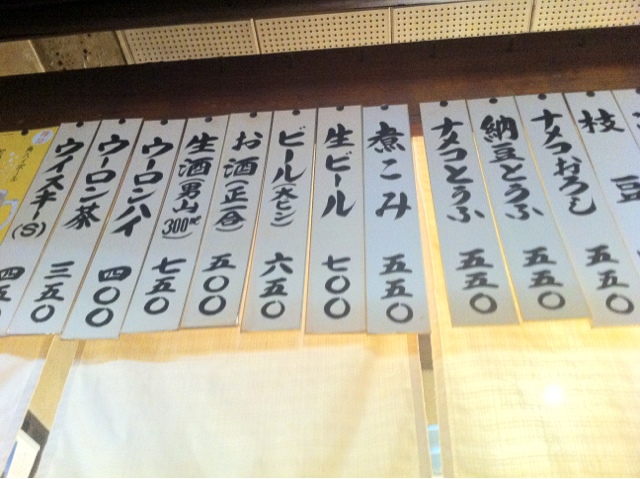 枝豆
ナメコおろし 五五〇
納豆とうふ 五五〇
ナメコとうふ 五五〇
煮こみ 五五〇
生ビール 七〇〇
ビール(大ビン) 六五〇
お酒(正一合) 五〇〇
生酒(男山)300ml 七五〇
ウーロンハイ 四〇〇
ウーロン茶 三五〇
ウイスキー(S) 四五〇